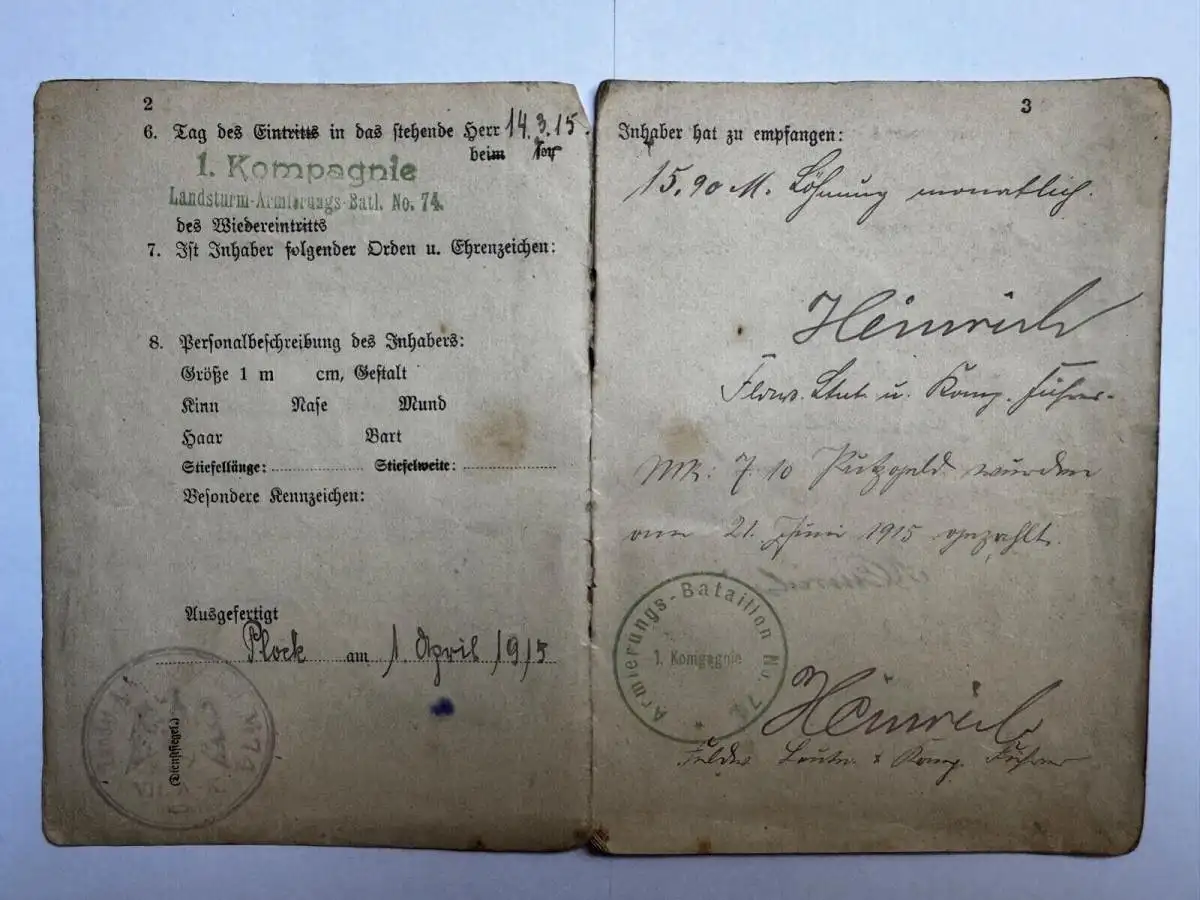 2
6. Tag des Eintritts in das stehende Herr 14.3.15.
beim
1. Kompagnie
Landsturm-Armierungs-Batl. No. 74.
des Wiedereintritts
7. Ist Inhaber folgender Orden u. Ehrenzeichen:
8. Personalbeschreibung des Inhabers:
Größe 1 m cm, Gestalt
Kinn Nase Mund
Haar Bart
Stiefellänge: Stiefelweite:
Besondere Kennzeichen:
Ausgefertigt
Plock am 1. April 1915
(Dienstsiegel.)
3
Inhaber hat zu empfangen:
15,90 M. Löhnung monatlich.
Heinrich
Feldw. Ltnt. u. Komp. Führer
Mk: 7.10 Putzgeld wurden
am 21. Juni 1915 gezahlt.
Armierungs-Bataillon No. 74
1. Kompagnie
Heinrich
Feldw. Leutn. & Komp. Führer